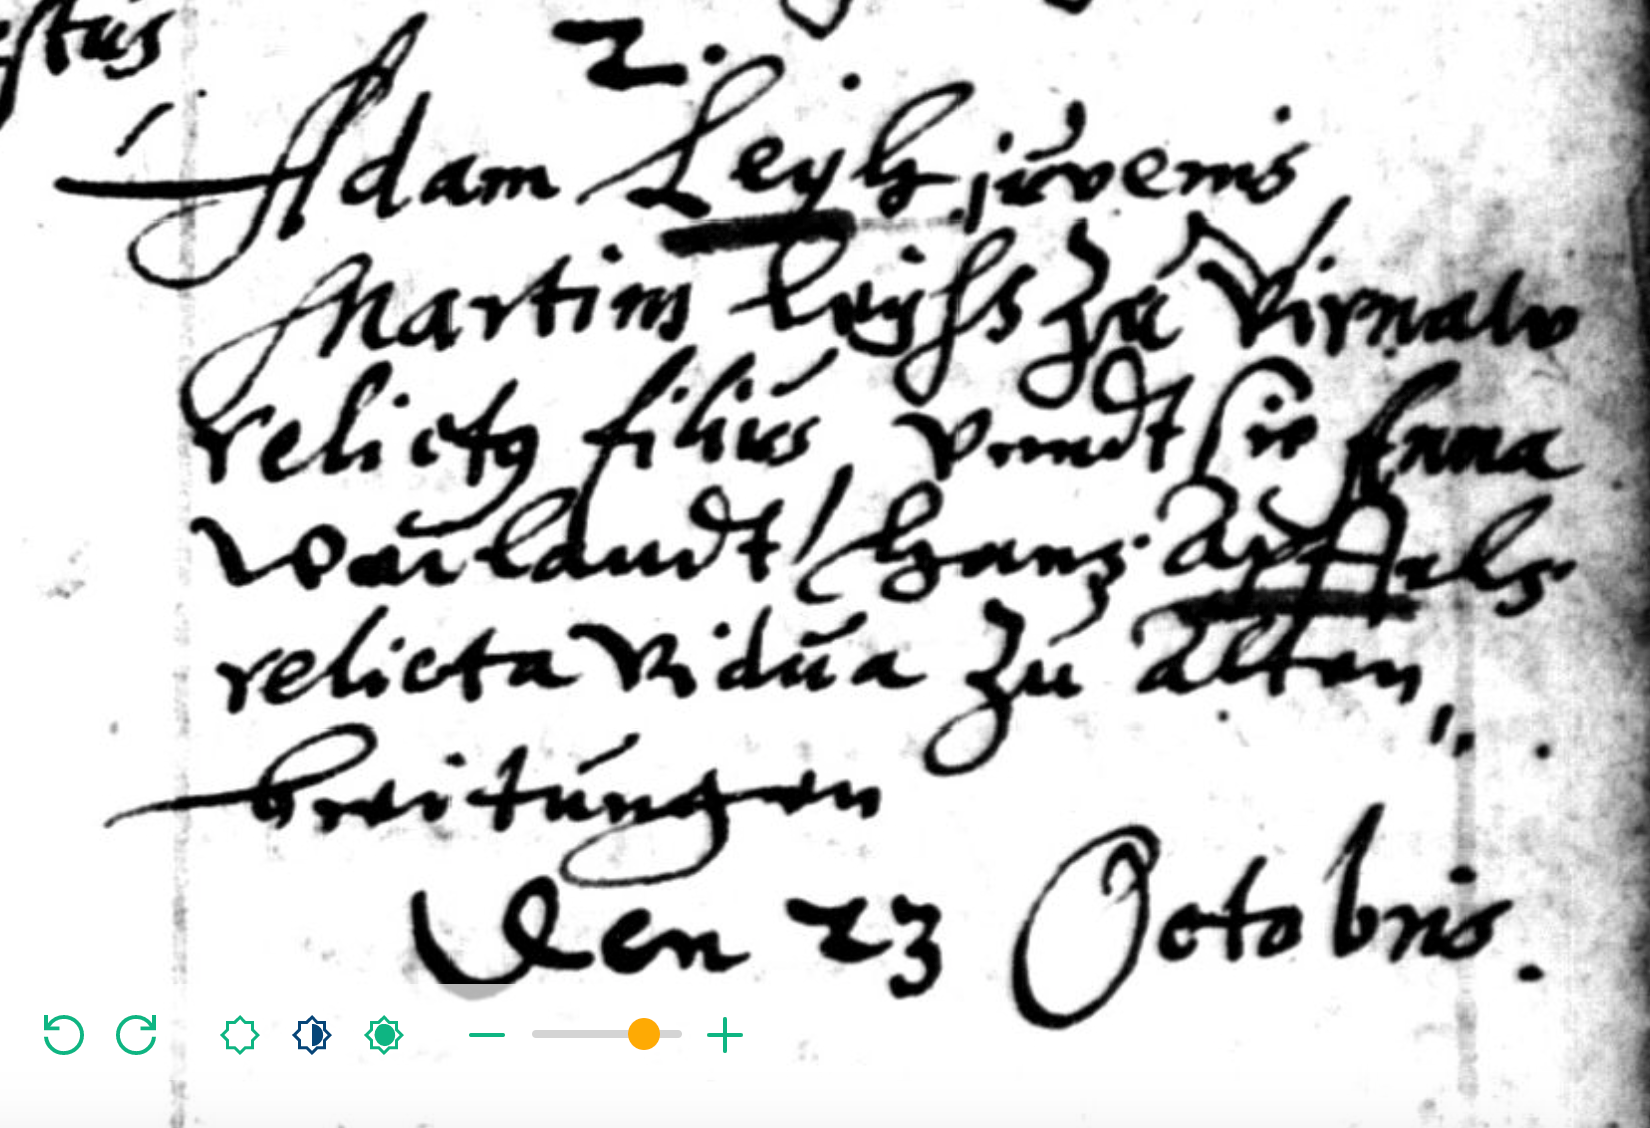 stus
2.
Adam Leyh, juvenis
Martini Leyhs zu Virnaw
relictꝯ filius, vnndt sie Anna
Weilandt Hans Apffels
relicta vidua zu alten„
breitungen
Den 23 Octobris.